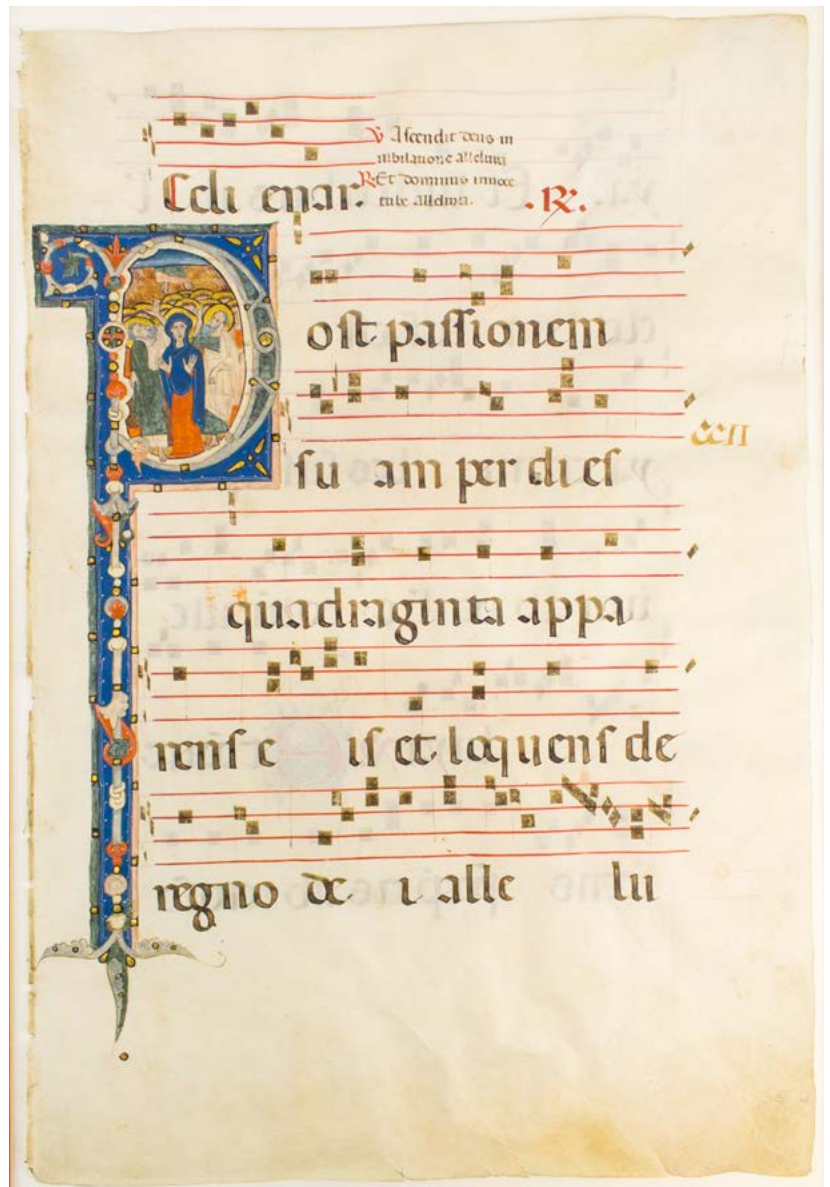 Celi enar.
℣ Ascendit deus in
iubilatione alleluia
℟ Et dominus in uoce
tube alleluia.
.℟.
Post passionem
su am per dies
CCII
quadraginta appa
rens e is et loquens de
regno de i alle lu